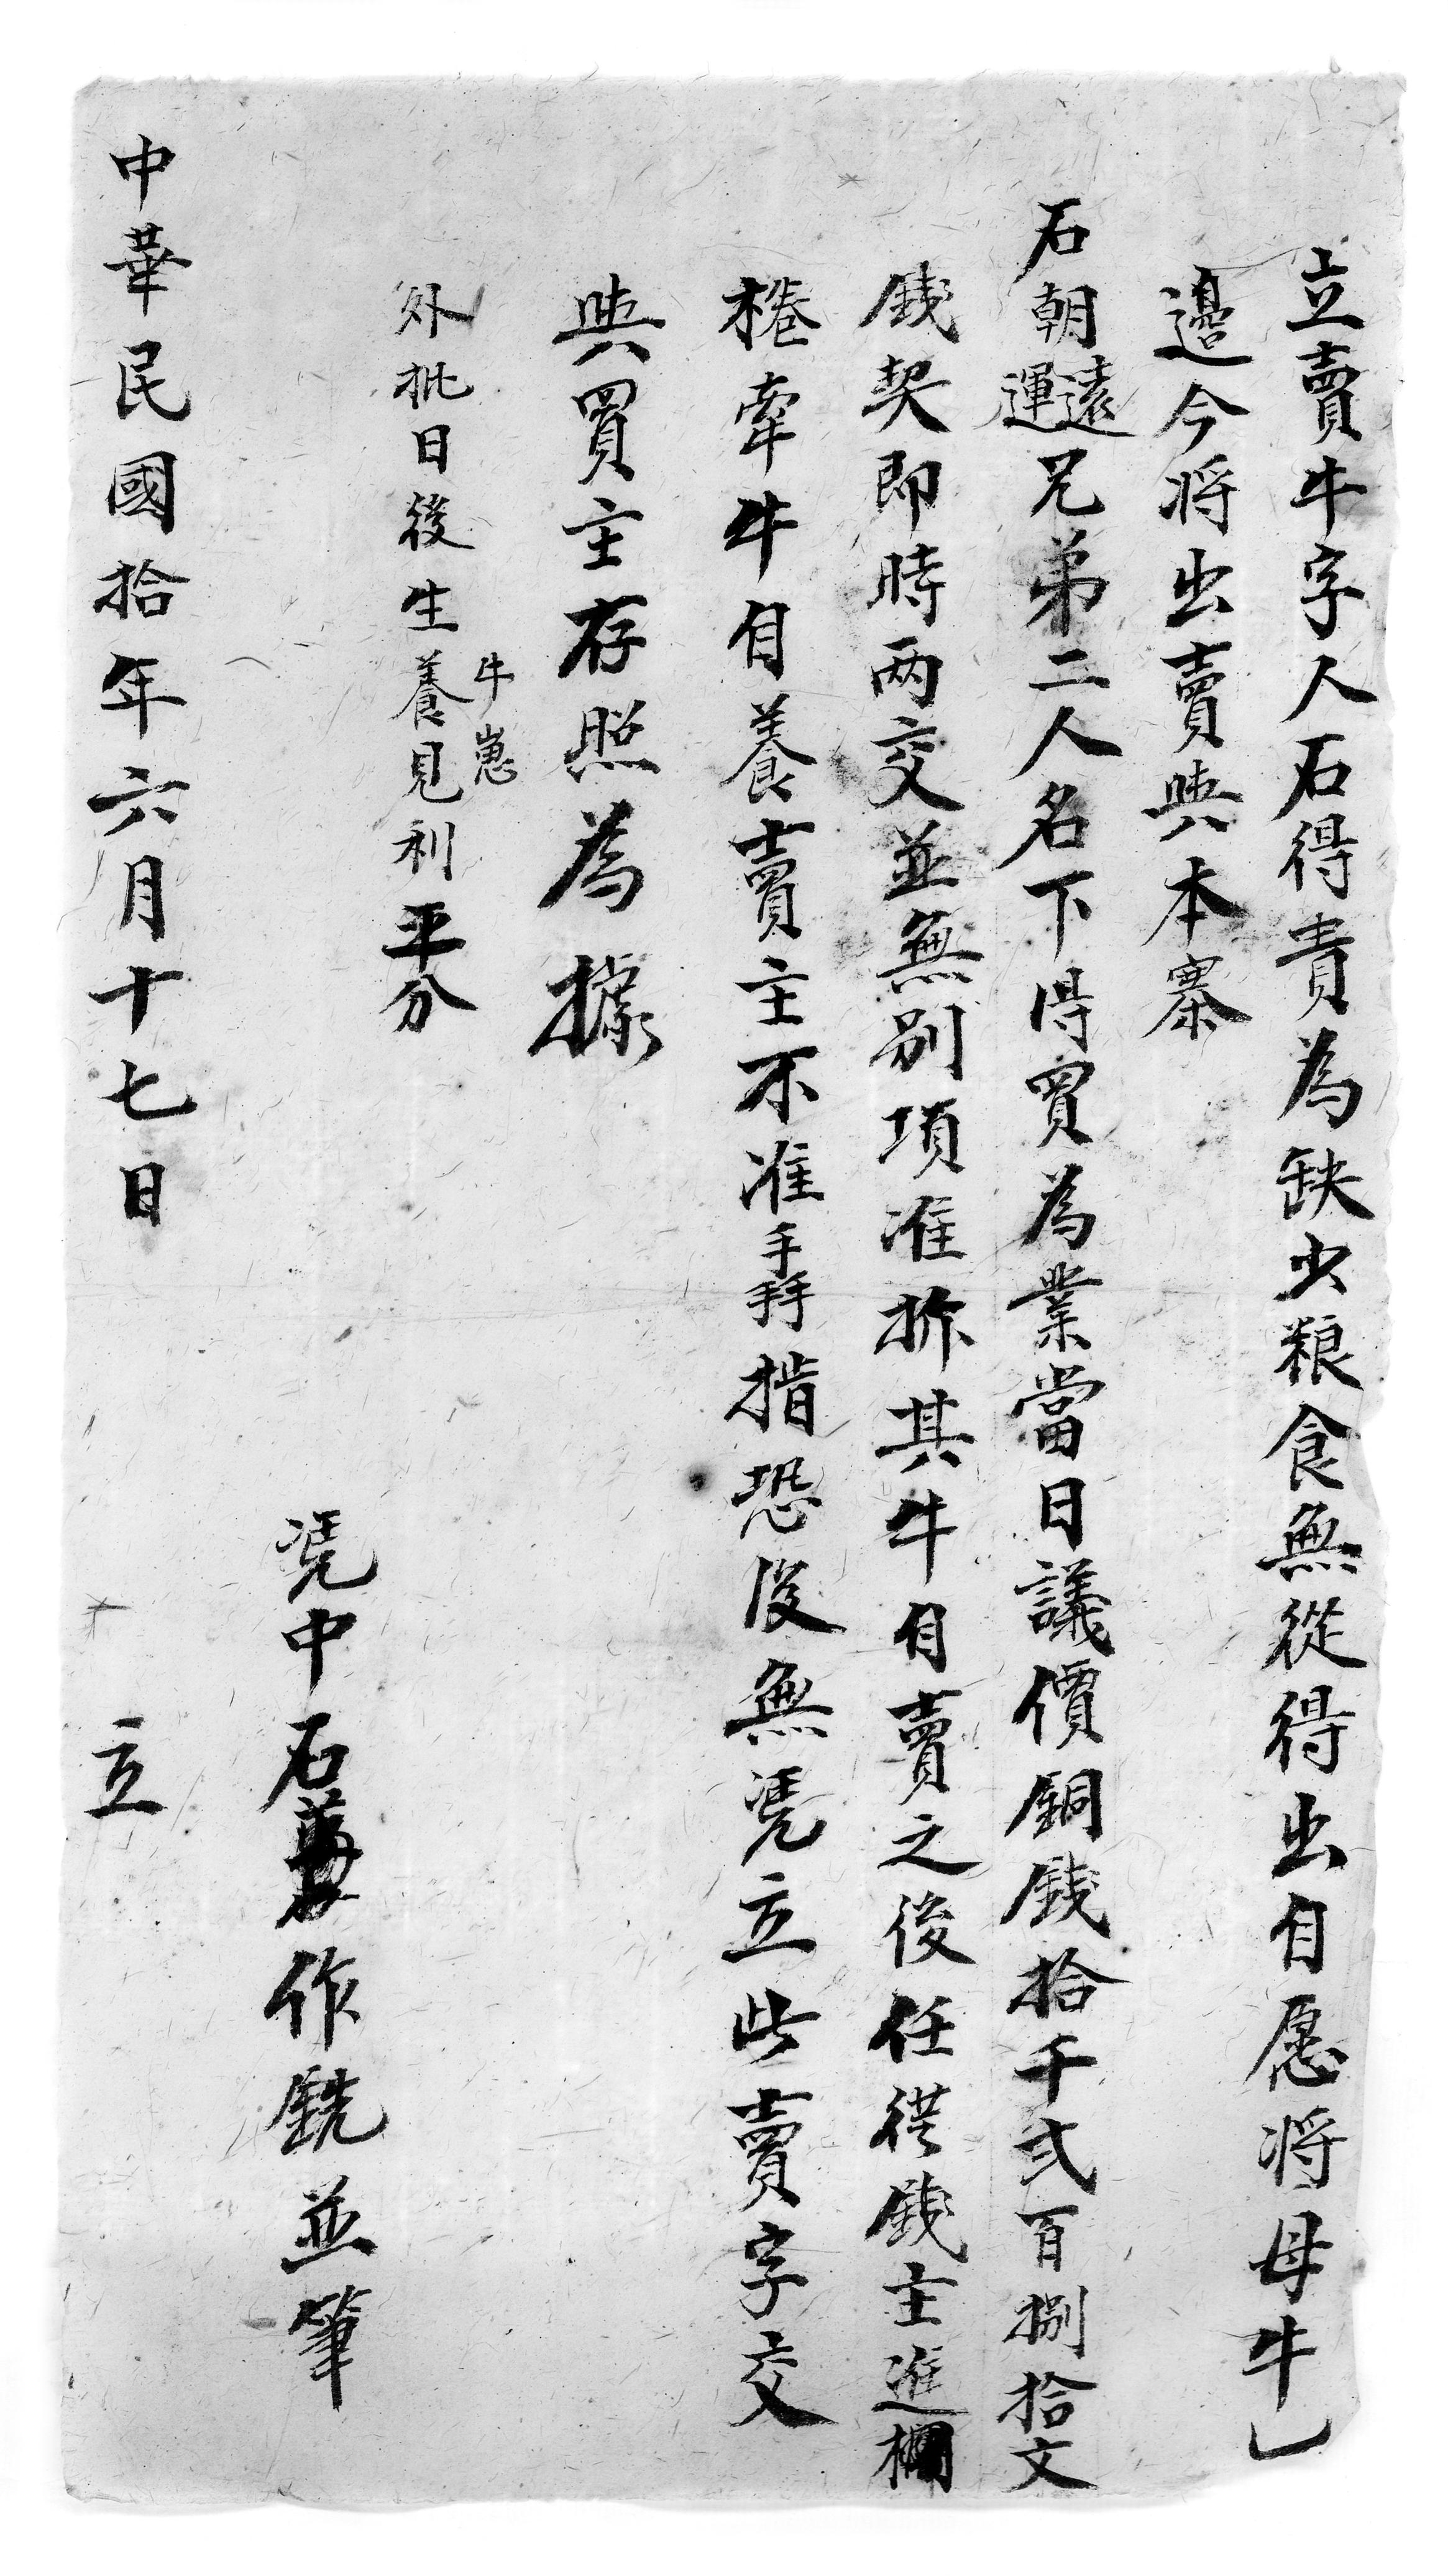 立賣牛字人石得責為缺少粮食無從得出自愿将母牛乚
邉今将出賣與本寨
石朝遠運兄弟二人名下得買為業當日議價銅錢拾千弍百捌拾文
錢契即時两交並無别項准拆其牛自賣之後任從錢主進欄
棬牽牛自養賣主不准掱揩恐後無凴立此賣字交
與買主存照為據
外批日後生牛崽養見利平分
凴中石 作銑並筆
中華民國拾年六月十七日 立